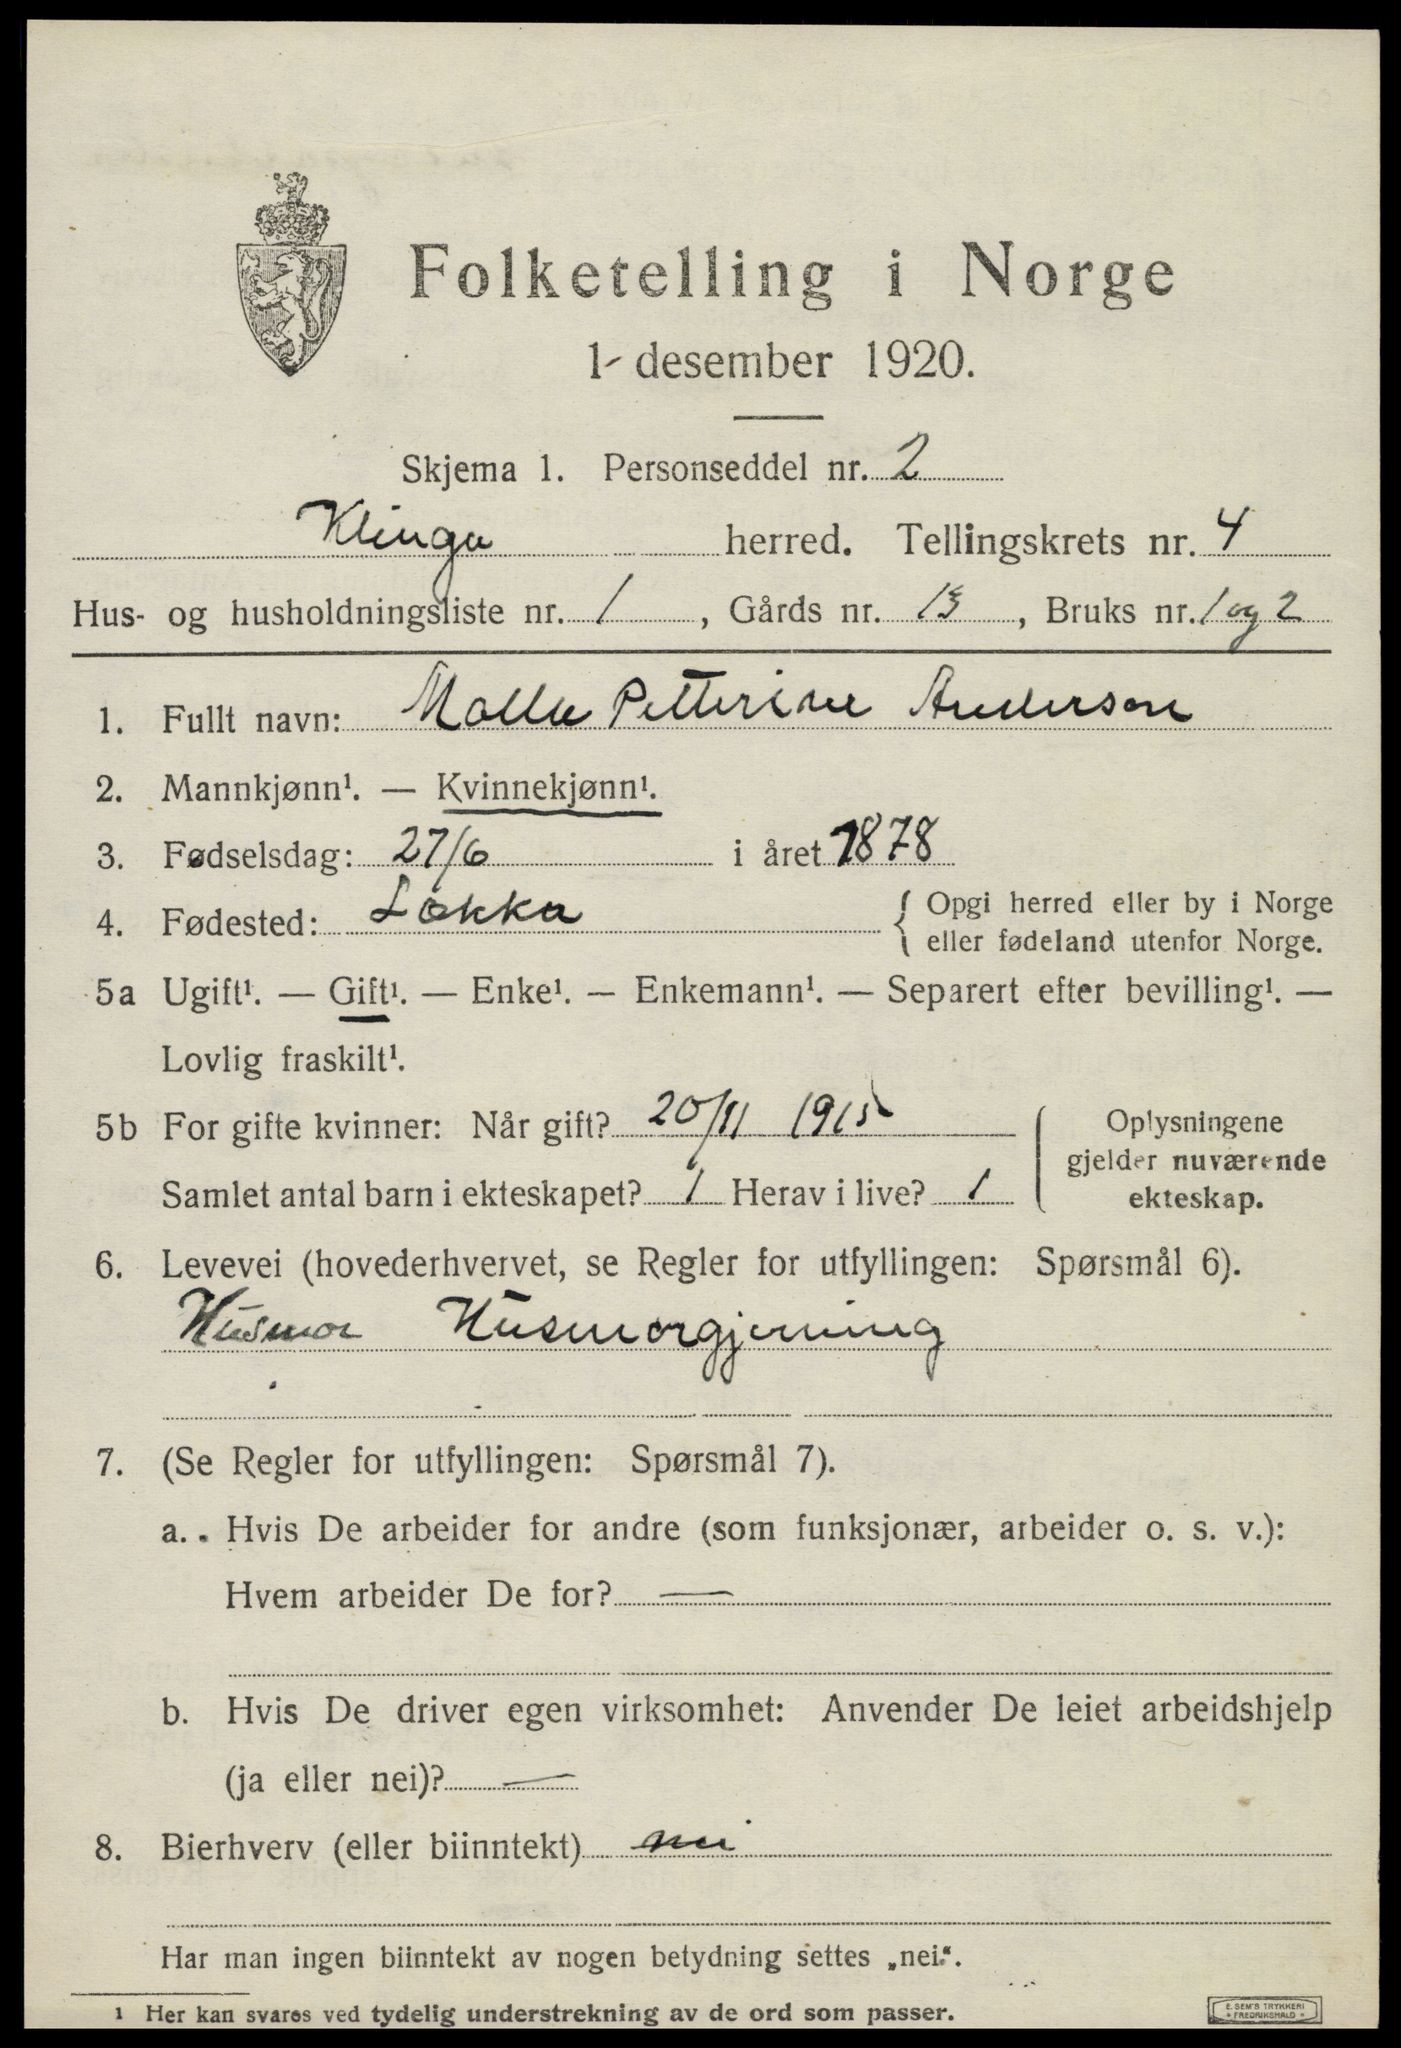 Folketelling i Norge
1 desember 1920.
Skjema 1. Personseddel nr. 2
Klinga herred. Tellingskrets nr. 4
Hus- og husholdningsliste nr. 1, Gårds nr. 13, Bruks nr. 1 og 2
1. Fullt navn: Petterine Anderson
2. Mannkjønn¹. — Kvinnekjønn¹.
3. Fødselsdag: 27/6 i året 1878
4. Fødested: { Opgi herred eller by i Norge
eller fødeland utenfor Norge.
5a Ugift¹. — Gift¹. — Enke¹. — Enkemann¹. — Separert efter bevilling¹. —
Lovlig fraskilt¹.
5b For gifte kvinner: Når gift? 20/11 1915
Samlet antal barn i ekteskapet? 1 Herav i live? 1
Oplysningene
gjelder nuværende
ekteskap.
6. Levevei (hovederhvervet, se Regler for utfyllingen: Spørsmål 6).
Husmor Husmorgjerning
7. (Se Regler for utfyllingen: Spørsmål 7).
a. Hvis De arbeider for andre (som funksjonær, arbeider o. s. v.):
Hvem arbeider De for? —
b. Hvis De driver egen virksomhet: Anvender De leiet arbeidshjelp
(ja eller nei)? —
8. Bierhverv (eller biinntekt) nei
Har man ingen biinntekt av nogen betydning settes „nei“.
¹ Her kan svares ved tydelig understrekning av de ord som passer.
E. SEM'S TRYKKERI
* FREDRIKSHALD *